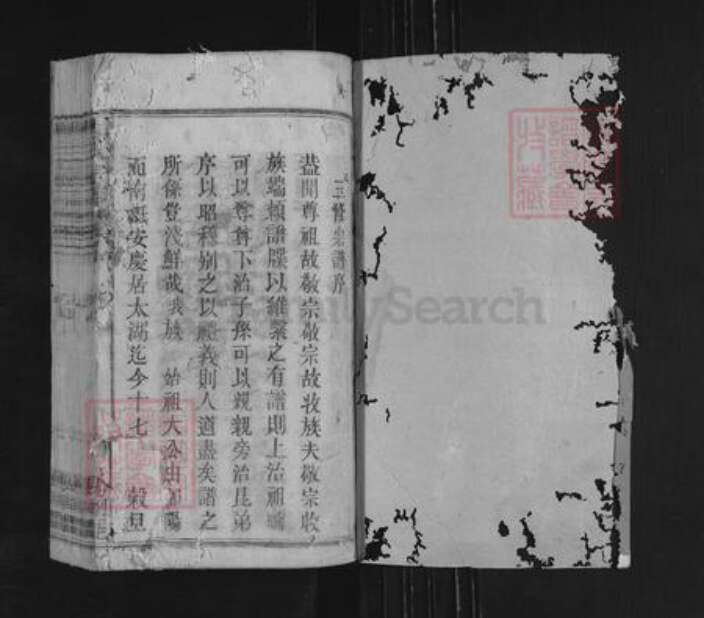 三修宗譜序
蓋聞尊祖故敬宗敬宗故收族夫敬宗收
族端賴譜牒以維繫之有譜則上治祖禰
可以尊尊下治子孫可以親親旁治昆弟
序以昭穆別之以禮義則人道盡矣譜之
所係豈淺鮮哉我族 始祖大公由
安慶居太湖迄今十七
FamilySearch